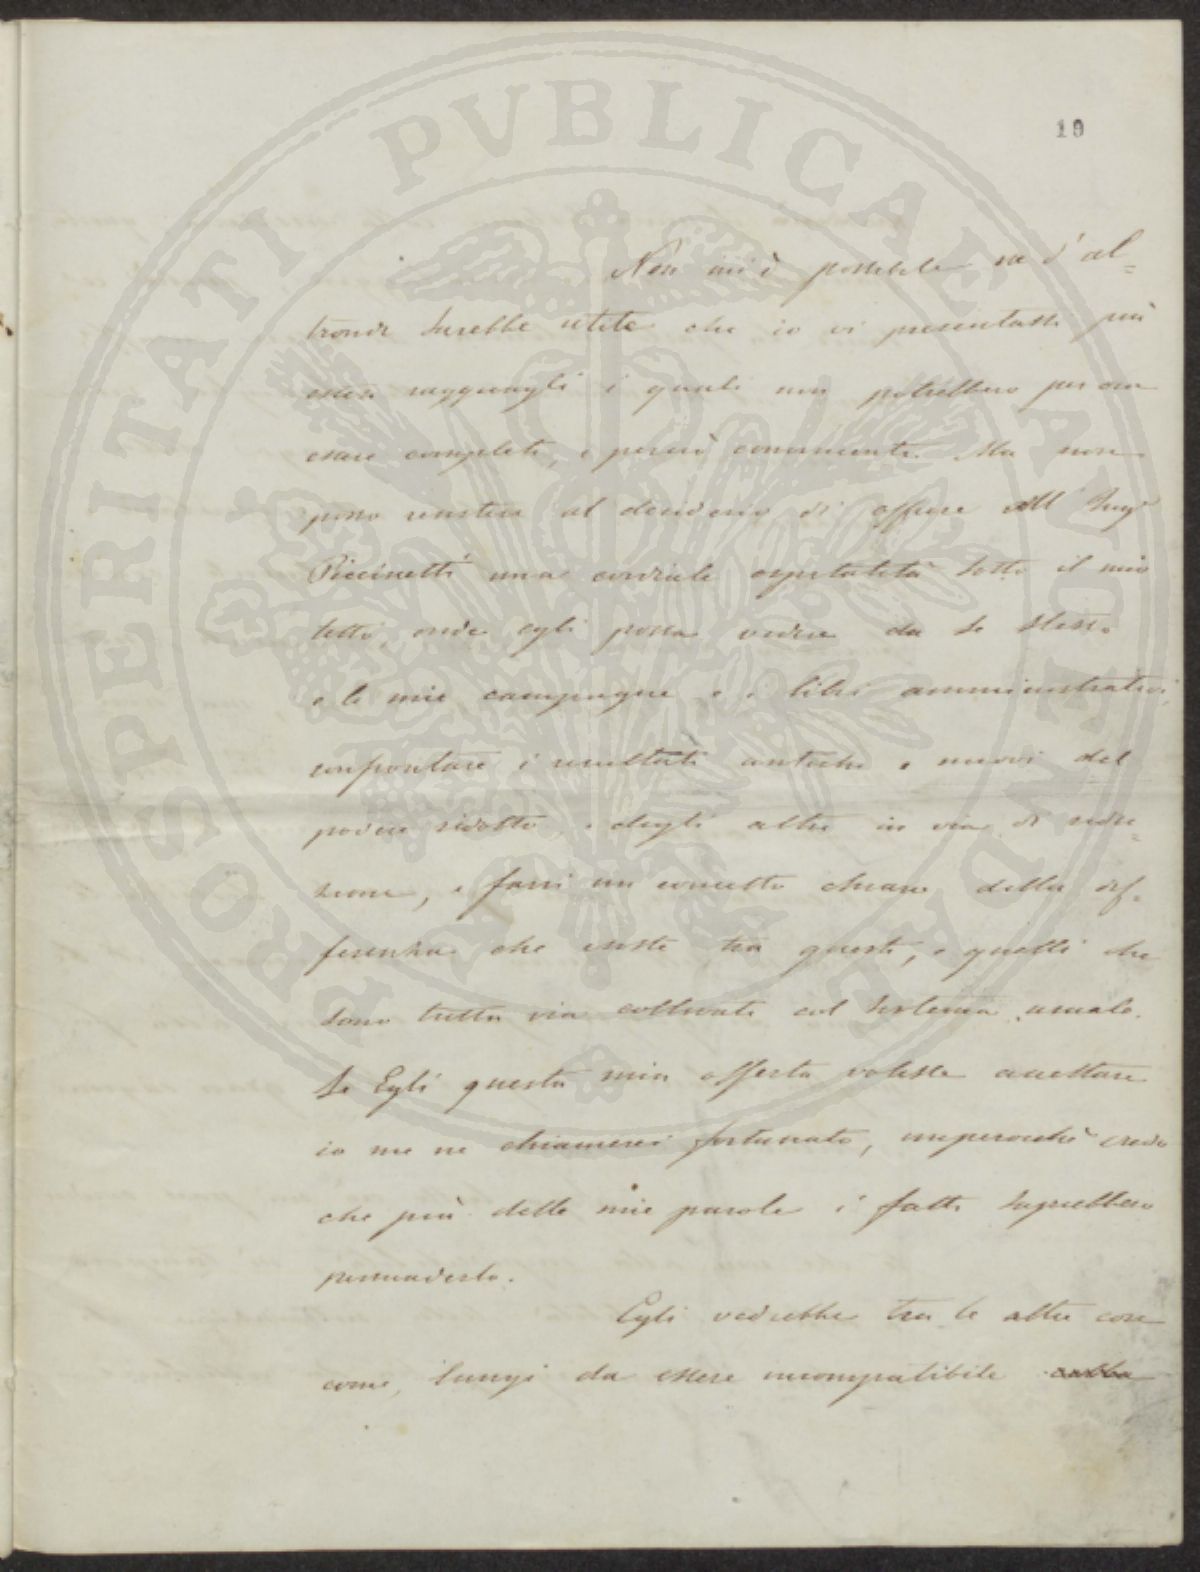 19
Non mi è possibile ne d' al=
tronde sarebbe utile che io vi presentassi più
estesi ragguagli i quali non potrebbero per ora
essere completi, e perciò convincenti. Ma non
posso resistere al desiderio di offrire all' Ing.
Piccinetti una cordiale ospitalità sotto il mio
tetto, onde egli possa vedere da se stesso
e le mie campagne e i libri amministrativi,
confrontare i resultati antichi e nuovi del
podere ridotto, e degli altri in via di redu=
zione, e farsi un concetto chiaro della dif=
ferenza che esiste tra questi, e quelli che
sono tutta via coltivati col sistema usuale.
Se Egli questa mia offerta volesse accettare
io me ne chiamerei fortunato, imperocchè credo
che più delle mie parole i fatti saprebbero
persuaderlo.
Egli vedrebbe tra le altre cose
come, lungi da essere incompatibile colla
PROSPERITATI PVBLICAE AVGENDAE